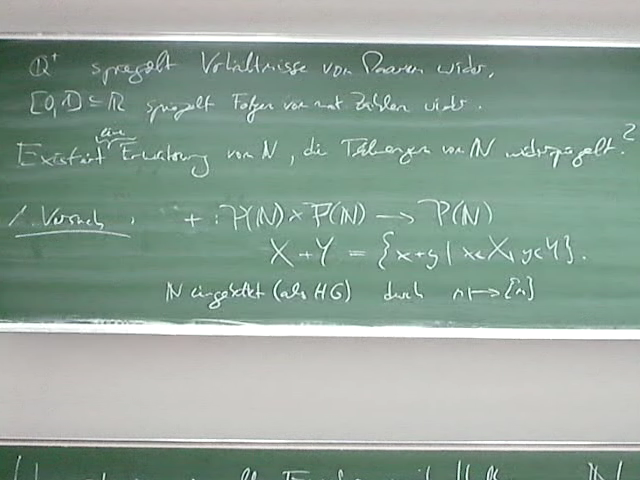 ℚ⁺ spiegelt Verhältnisse von Paaren wider.
[0,1] ⊆ ℝ spiegelt Folgen von nat Zahlen wider.
Existiert eine Erweiterung von ℕ, die Teilmengen von ℕ widerspiegelt?
1. Versuch: + : P(ℕ) × P(ℕ) → P(ℕ)
X + Y = {x+y | x∈X, y∈Y}.
ℕ eingebettet (als HG) durch n ↦ {n}